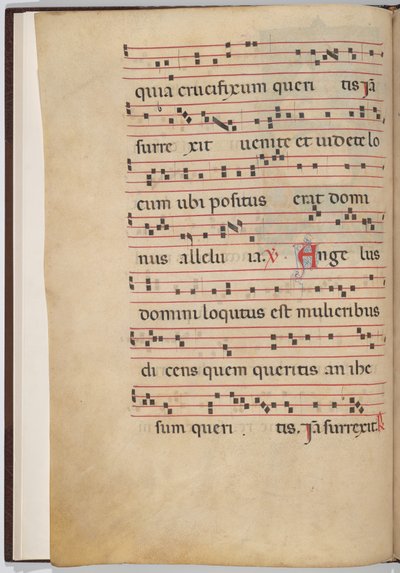 quia crucifixum queri tis Iā
surre xit uenite et uidete lo
cum ubi positus erat domi
nus allelu ia. ℣ Ange lus
domini loqutus est mulieribus
di cens quem queritis an ihe
sum queri tis. Iā surrexit. ℟